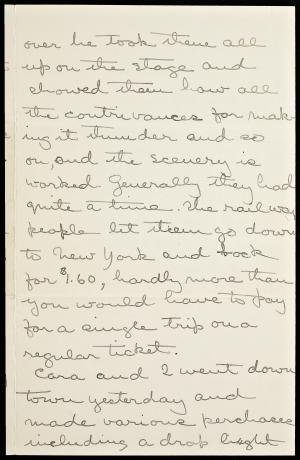 over he took them all
up on the stage and
showed them how all
the contrivances for mak-
ing it thunder and so
on, and the scenery is
worked. Generally they had
quite a time. The railway
people let them go down
to New York and back
for $1.60, hardly more than
you would have to pay
for a single trip on a
regular ticket.
Cara and I went down
town yesterday and
made various perchases
including a drop light